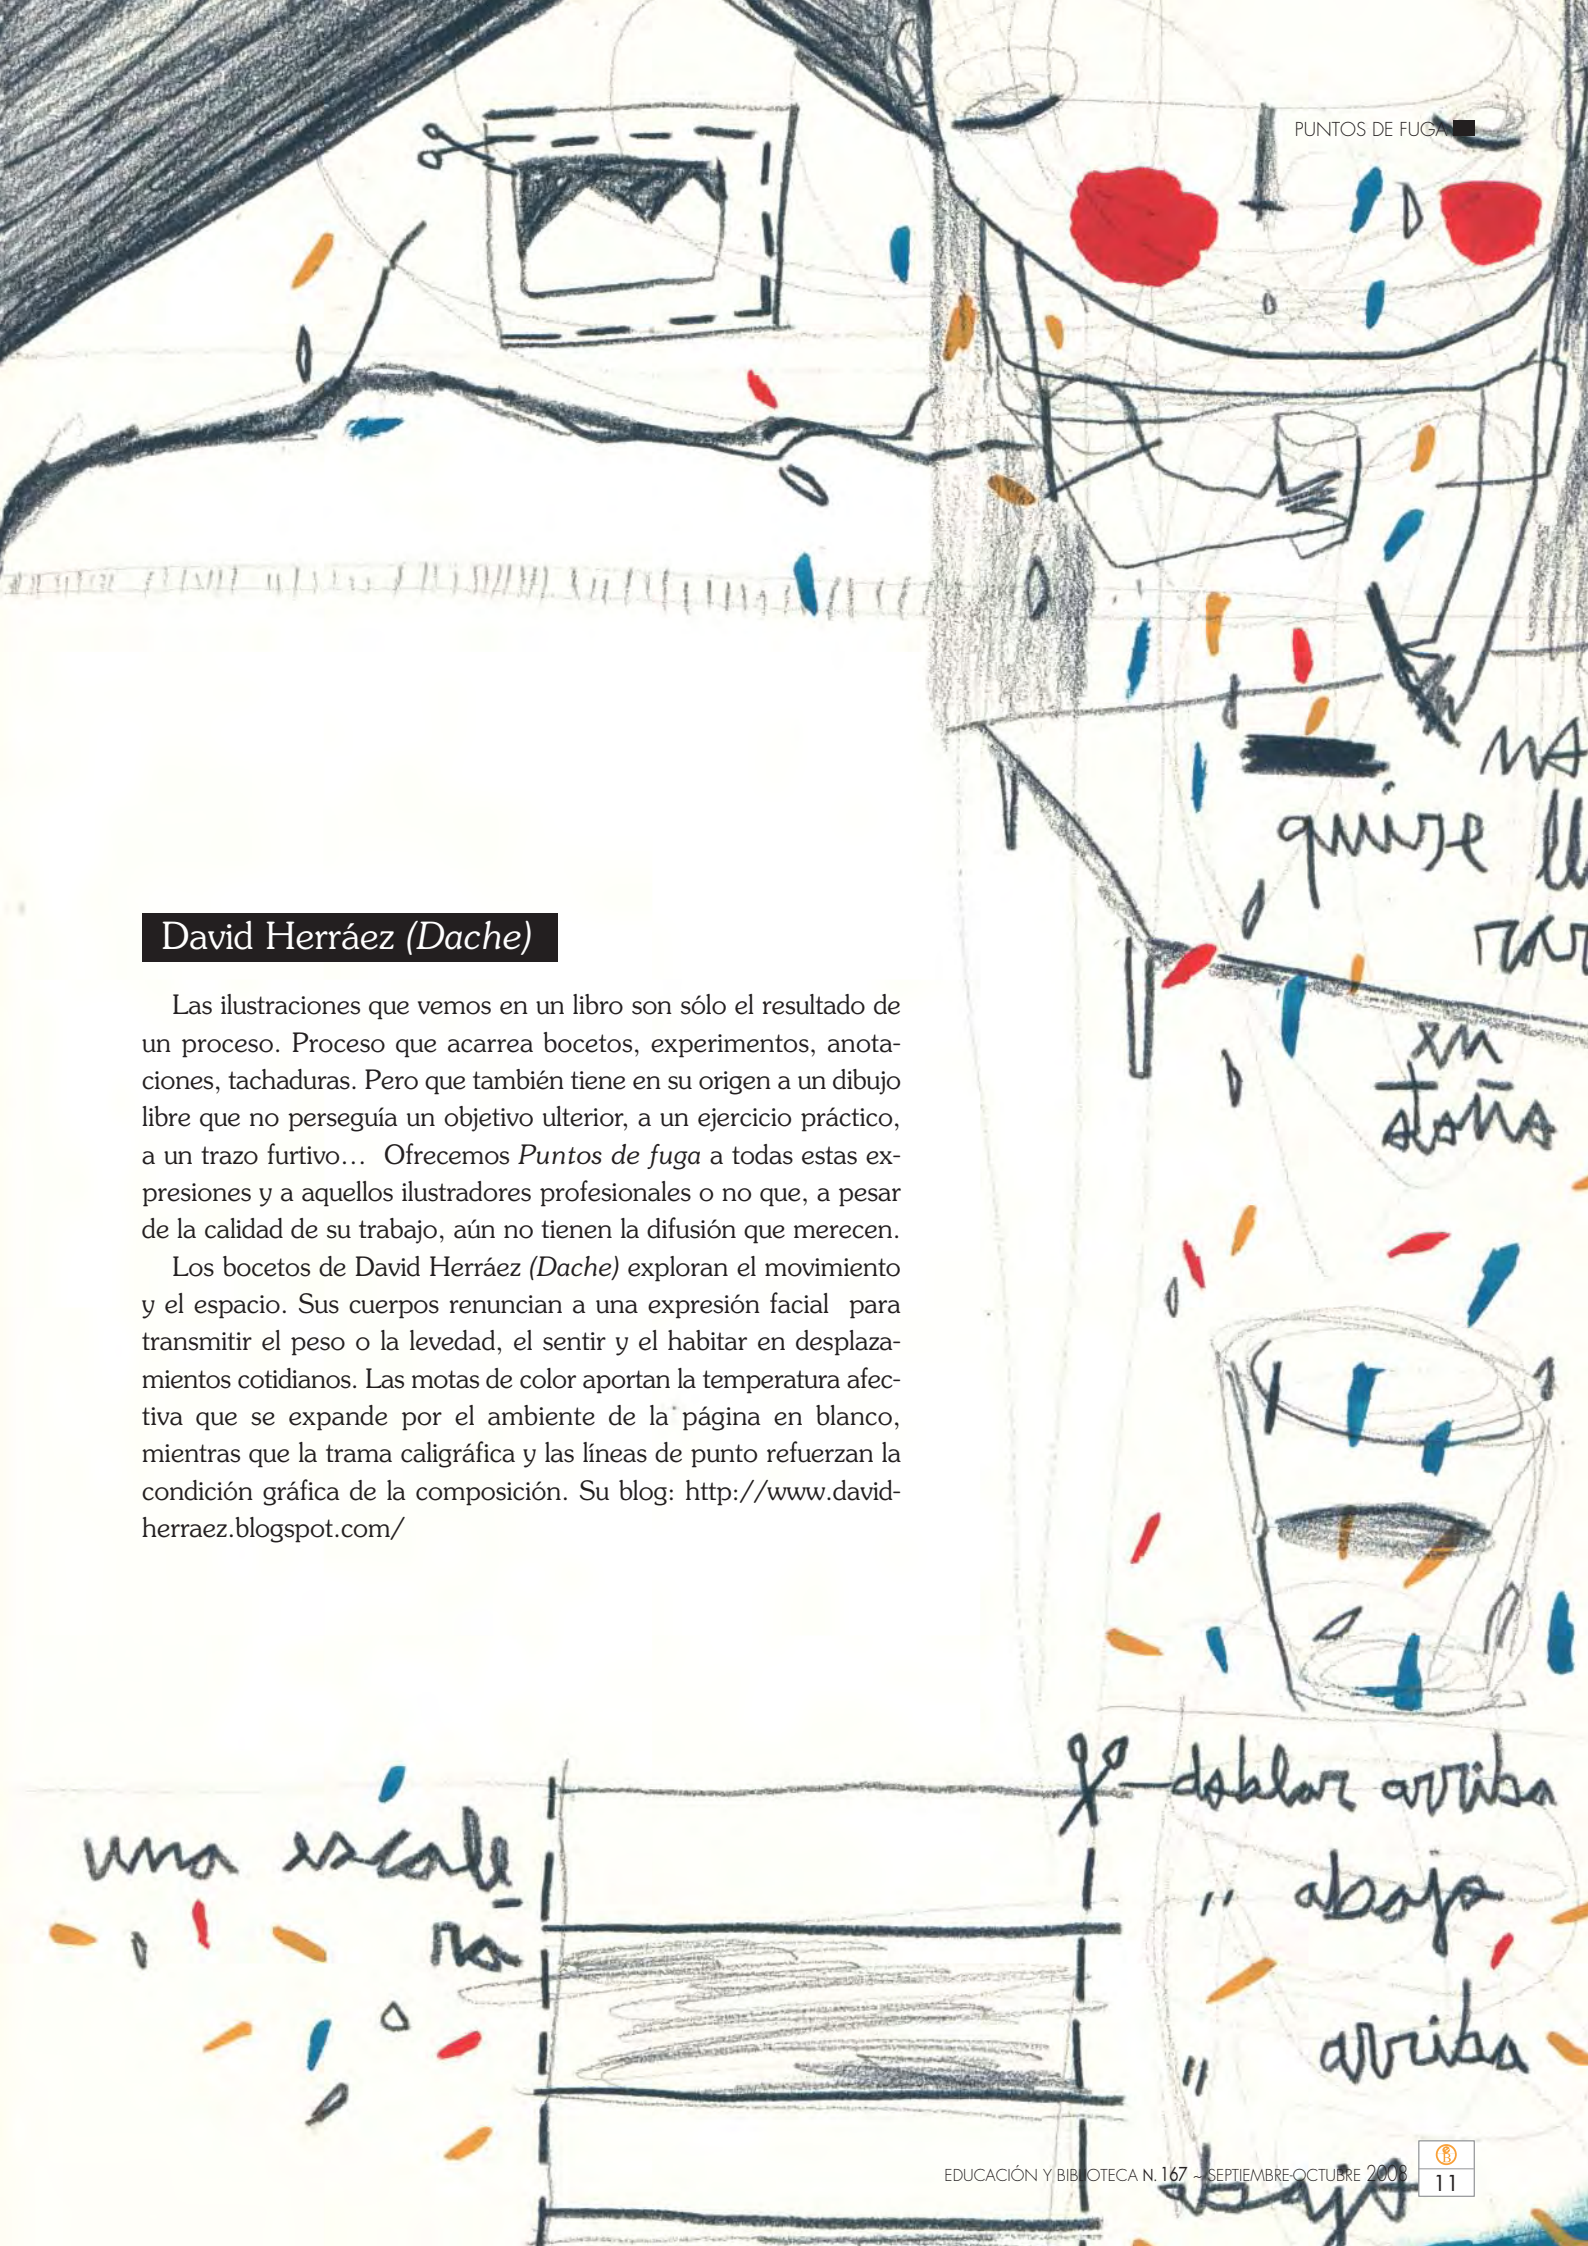 PUNTOS DE FUGA
quise
en
otoño
David Herráez (Dache)
Las ilustraciones que vemos en un libro son sólo el resultado de
un proceso. Proceso que acarrea bocetos, experimentos, anota-
ciones, tachaduras. Pero que también tiene en su origen a un dibujo
libre que no perseguía un objetivo ulterior, a un ejercicio práctico,
a un trazo furtivo… Ofrecemos Puntos de fuga a todas estas ex-
presiones y a aquellos ilustradores profesionales o no que, a pesar
de la calidad de su trabajo, aún no tienen la difusión que merecen.
Los bocetos de David Herráez (Dache) exploran el movimiento
y el espacio. Sus cuerpos renuncian a una expresión facial para
transmitir el peso o la levedad, el sentir y el habitar en desplaza-
mientos cotidianos. Las motas de color aportan la temperatura afec-
tiva que se expande por el ambiente de la página en blanco,
mientras que la trama caligráfica y las líneas de punto refuerzan la
condición gráfica de la composición. Su blog: http://www.david-
herraez.blogspot.com/
una escale-
ra
doblar arriba
" abajo
" arriba
abajo
EDUCACIÓN Y BIBLIOTECA N. 167 ~ SEPTIEMBRE-OCTUBRE 2008
11